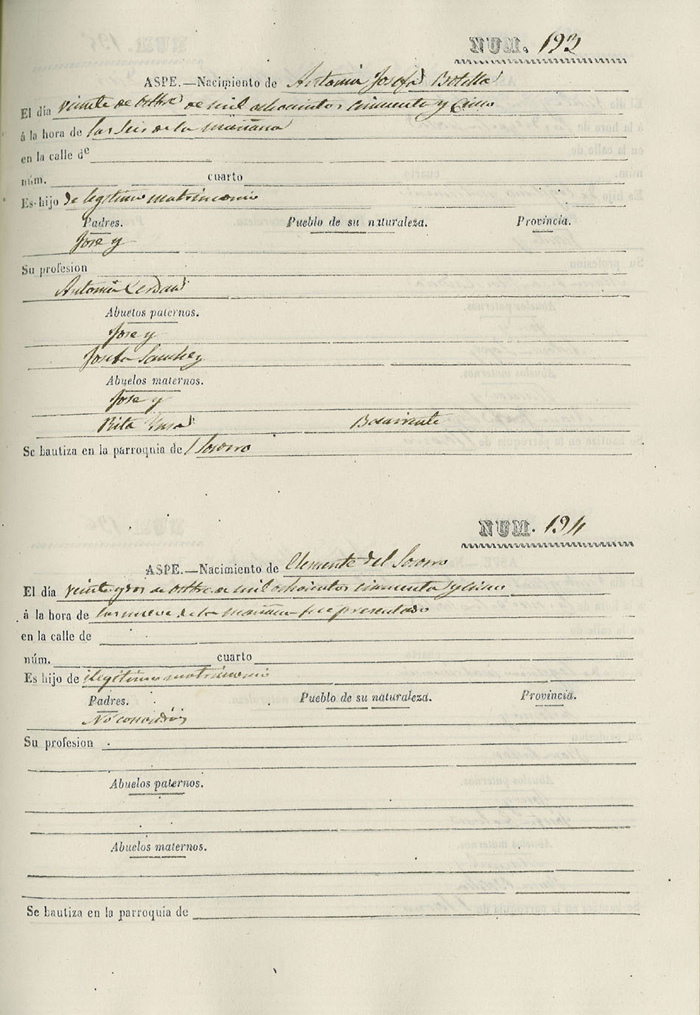 NUM. 193
ASPE.—Nacimiento de Antonia Josefa Botella
El día veinte de Octbre de mil ochocientos cincuenta y cinco
á la hora de las seis de la mañana
en la calle de
núm. cuarto
Es hijo de legitimo matrimonio
Padres. Pueblo de su naturaleza. Provincia.
Jose y
Su profesion
Antonia Cerdan
Abuelos paternos.
Jose y
Josefa Sanchez
Abuelos maternos.
Jose y
Rita Bocairente
Se bautiza en la parroquia de l Socorro
NUM. 194
ASPE.—Nacimiento de Clemente del Socorro
El día veinte y dos de Octbre de mil ochocientos cincuenta y cinco
á la hora de las nueve de la mañana fue presentado
en la calle de
núm. cuarto
Es hijo de ilegitimo matrimonio
Padres. Pueblo de su naturaleza. Provincia.
No conocidos
Su profesion
Abuelos paternos.
Abuelos maternos.
Se bautiza en la parroquia de